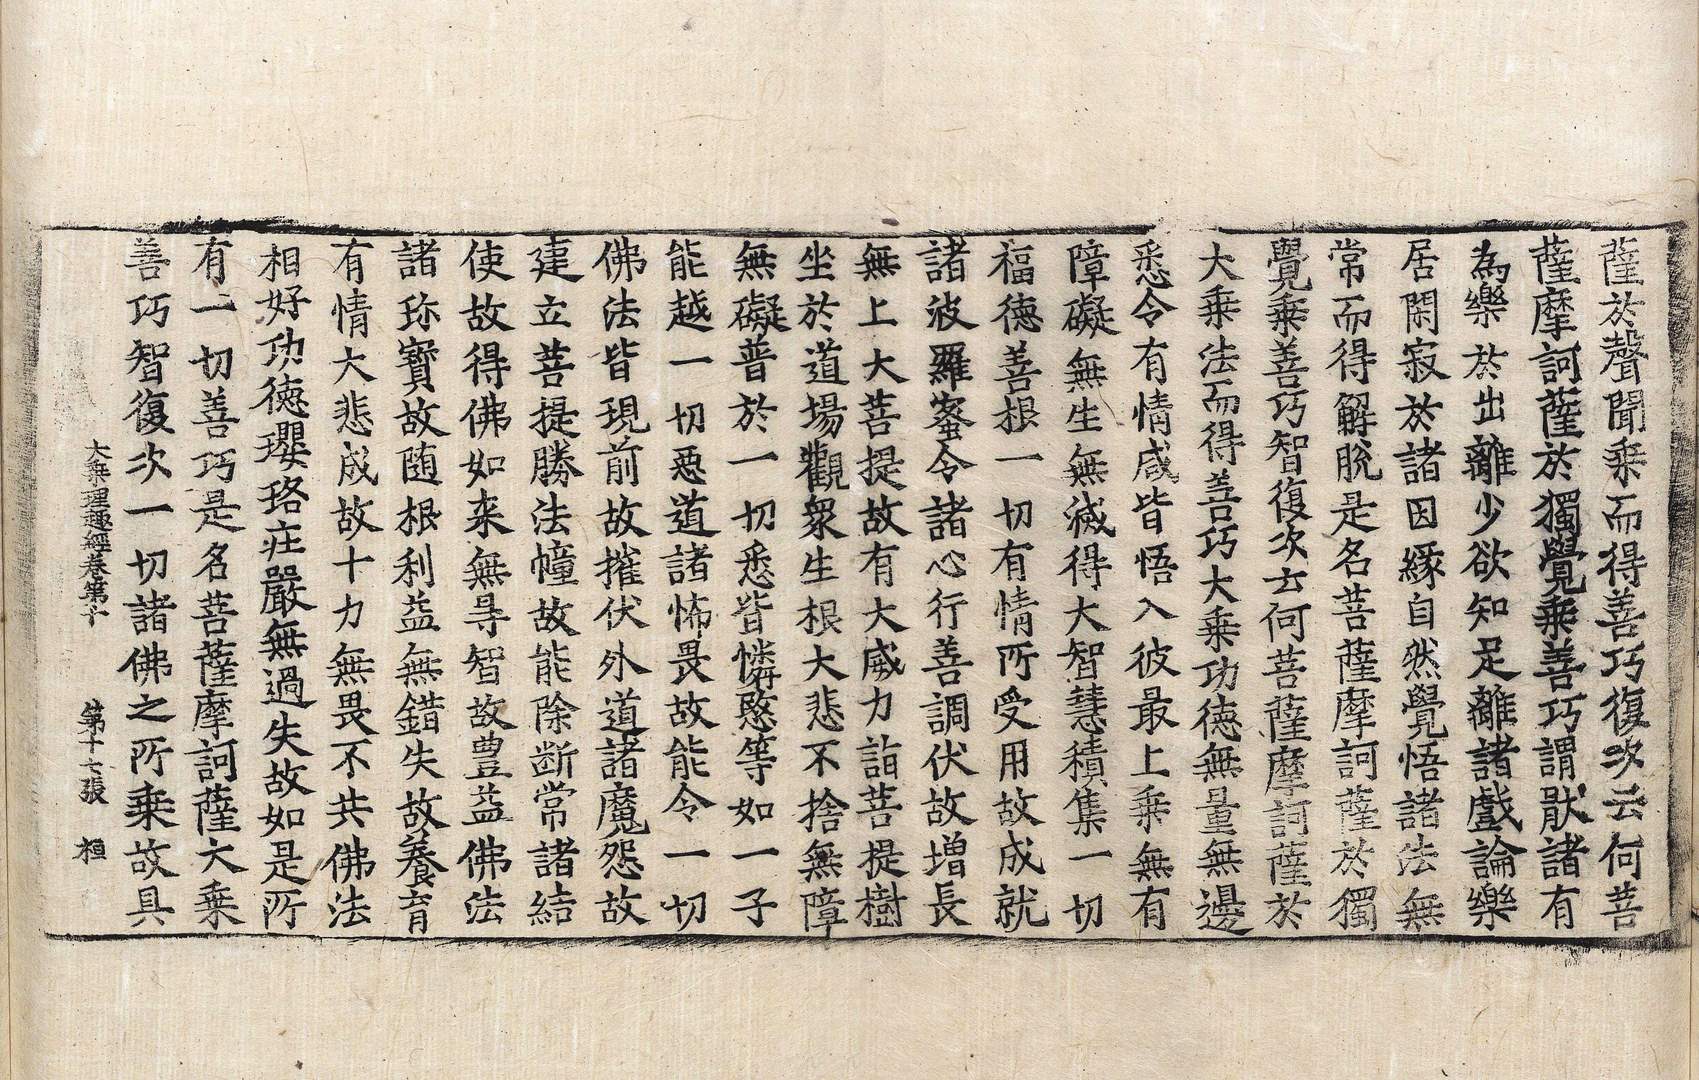 薩於聲聞乗而得善巧復次云何菩
薩摩訶薩於獨覺乗善巧謂猒諸有
為樂於出離少欲知足離諸戲論樂
居閑寂於諸因緣自然覺悟諸法無
常而得解脫是名菩薩摩訶薩於獨
覺乗善巧智復次云何菩薩摩訶薩於
大乗法而得善巧大乗功德無量無邊
悉令有情咸皆悟入彼最上乗無有
障礙無生無滅得大智慧積集一切
福德善根一切有情所受用故成就
諸波羅蜜令諸心行善調伏故增長
無上大菩提故有大威力詣菩提樹
坐於道場觀衆生根大悲不捨無障
無礙普於一切悉皆憐愍等如一子
能越一切惡道諸怖畏故能令一切
佛法皆現前故摧伏外道諸魔怨故
建立菩提勝法幢故能除断常諸結
使故得佛如来無㝵智故豊益佛法
諸珎寶故随根利益無錯失故養育
有情大悲成故十力無畏不共佛法
相好功德瓔珞庄嚴無過失故如是所
有一切善巧是名菩薩摩訶薩大乗
善巧智復次一切諸佛之所乗故具
大乗理趣經卷第十 第十七張 桓